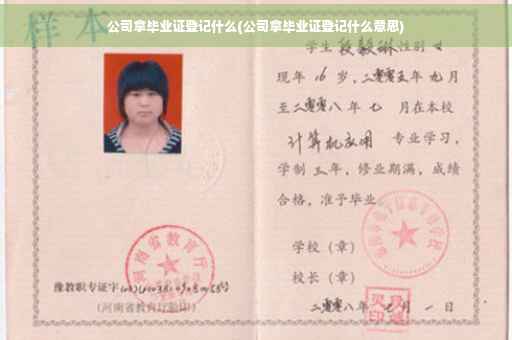 样本
公司拿毕业证登记什么(公司拿毕业证登记什么意思)
学生 段毅琳 性别 女
现年 16 岁，二零零五年 九 月
至二零零八年 七 月在本校
计算机应用 专业学习，
学制 三 年，修业期满，成绩
合格，准予毕业
学校（章）
校长（章）
二零零八年 七 月 一 日
河南省教育厅
豫教职专证字
(河南省教育厅验印)